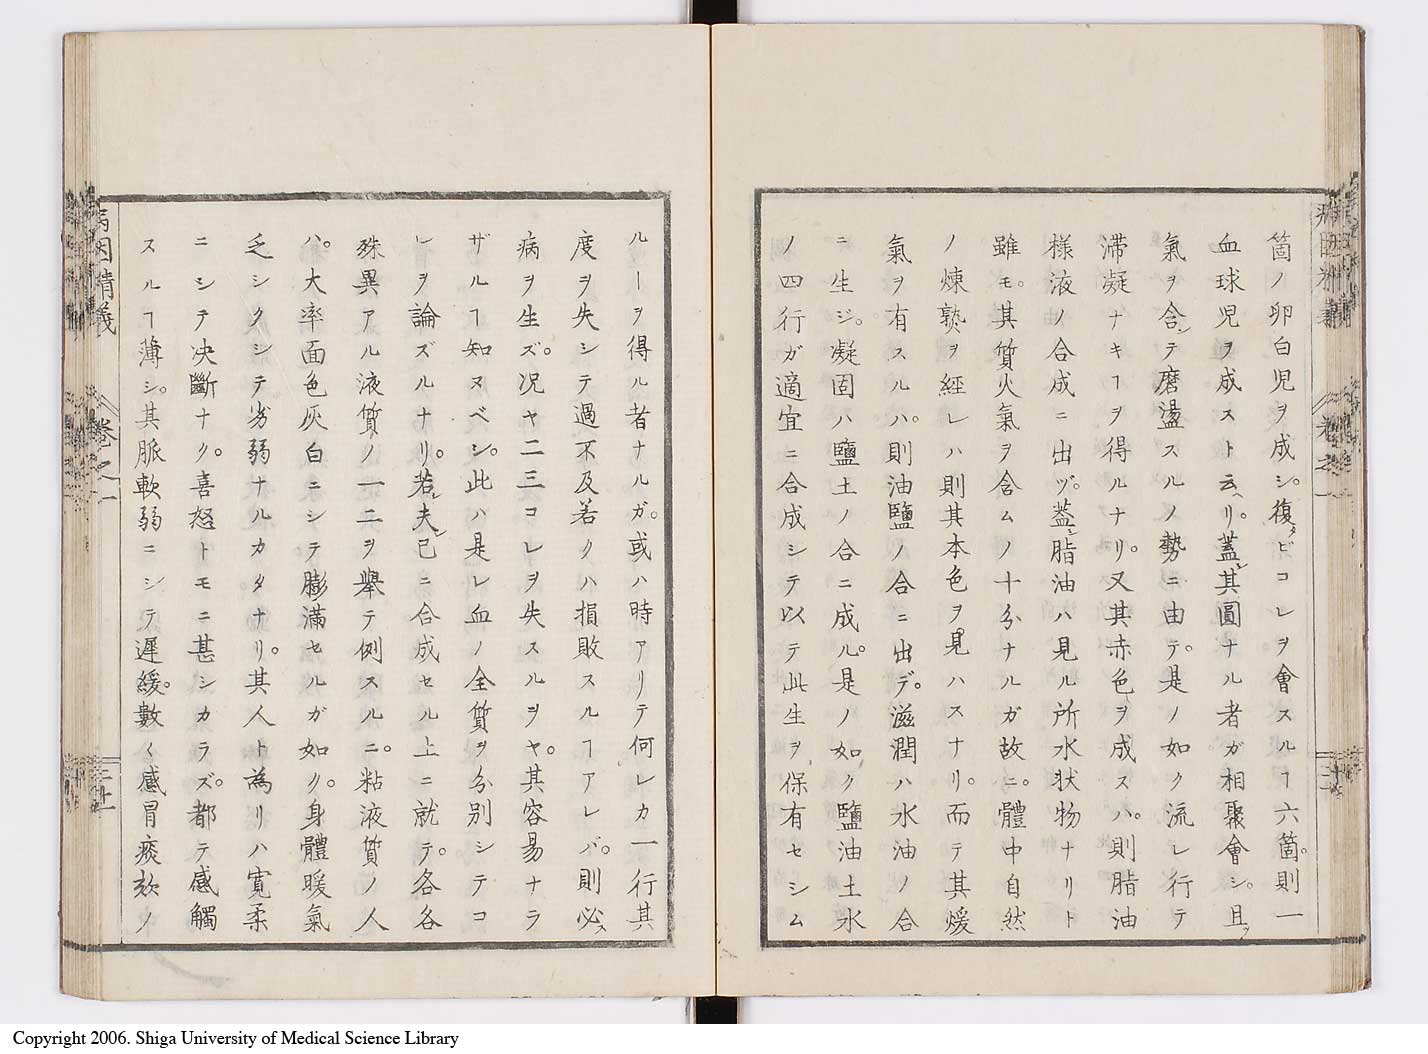 箇ノ卵白児ヲ成シ。復タビコレヲ會スルヿ六箇。則一
血球児ヲ成スト云ヘリ。蓋シ其圓ナル者ガ相聚會シ。且ヲ
氣ヲ含シテ磨盪スルノ勢ニ由テ。是ノ如ク流レ行テ
滞凝ナキヿヲ得ルナリ。又其赤色ヲ成スハ。則脂油
様液ノ合成ニ出ヅ。蓋シ脂油ハ見ル所水状物ナリト
雖モ。其質火氣ヲ含ムノ十分ナルガ故ニ。體中自然
ノ煉熟ヲ經レハ則其本色ヲ見ハスナリ。而テ其煖
氣ヲ有スルハ。則油鹽ノ合ニ出デ。滋潤ハ水油ノ合
ニ生ジ。凝固ハ鹽土ノ合ニ成ル。是ノ如ク鹽油土水
ノ四行ガ適宜ニ合成シテ以テ此生ヲ保有セシム
ルーヲ得ル者ナルガ。或ハ時アリテ何レカ一行其
度ヲ失シテ過不及若クハ損敗スルヿアレバ。則必ス
病ヲ生ズ。况ヤ二三コレヲ失スルヲヤ。其容易ナラ
ザルヿ知ヌベシ。此ハ是レ血ノ全質ヲ分別シテコ
レヲ論ズルナリ。若シ夫レ已ニ合成セル上ニ就テ。各各
殊異アル液質ノ一二ヲ擧テ例スルニ。粘液質ノ人
ハ。大率面色灰白ニシテ膨満セルガ如リ。身體暖氣
乏シクシテ劣弱ナルカタナリ。其人ト為リハ寛柔
ニシテ决斷ナク。喜怒トモニ甚シカラズ。都テ感觸
スルヿ薄シ。其脈軟弱ニシテ遲緩。數〱感冒痰欬ノ
病因精義
卷之一
二十一
Copyright 2006. Shiga University of Medical Science Library